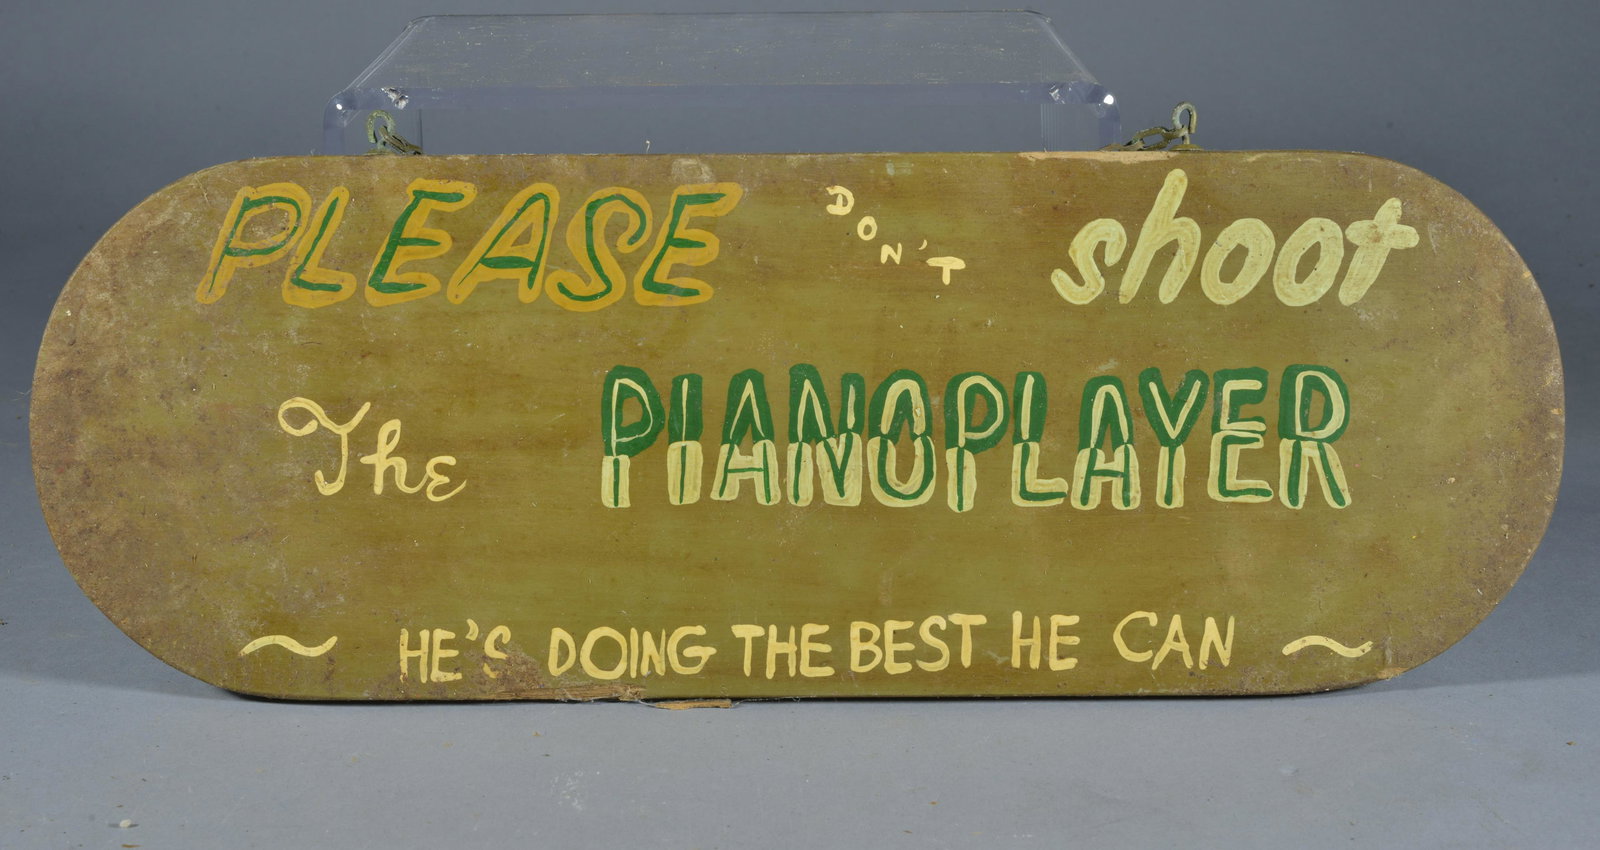 PLEASE DON'T shoot
The PIANOPLAYER
~ HE'S DOING THE BEST HE CAN ~